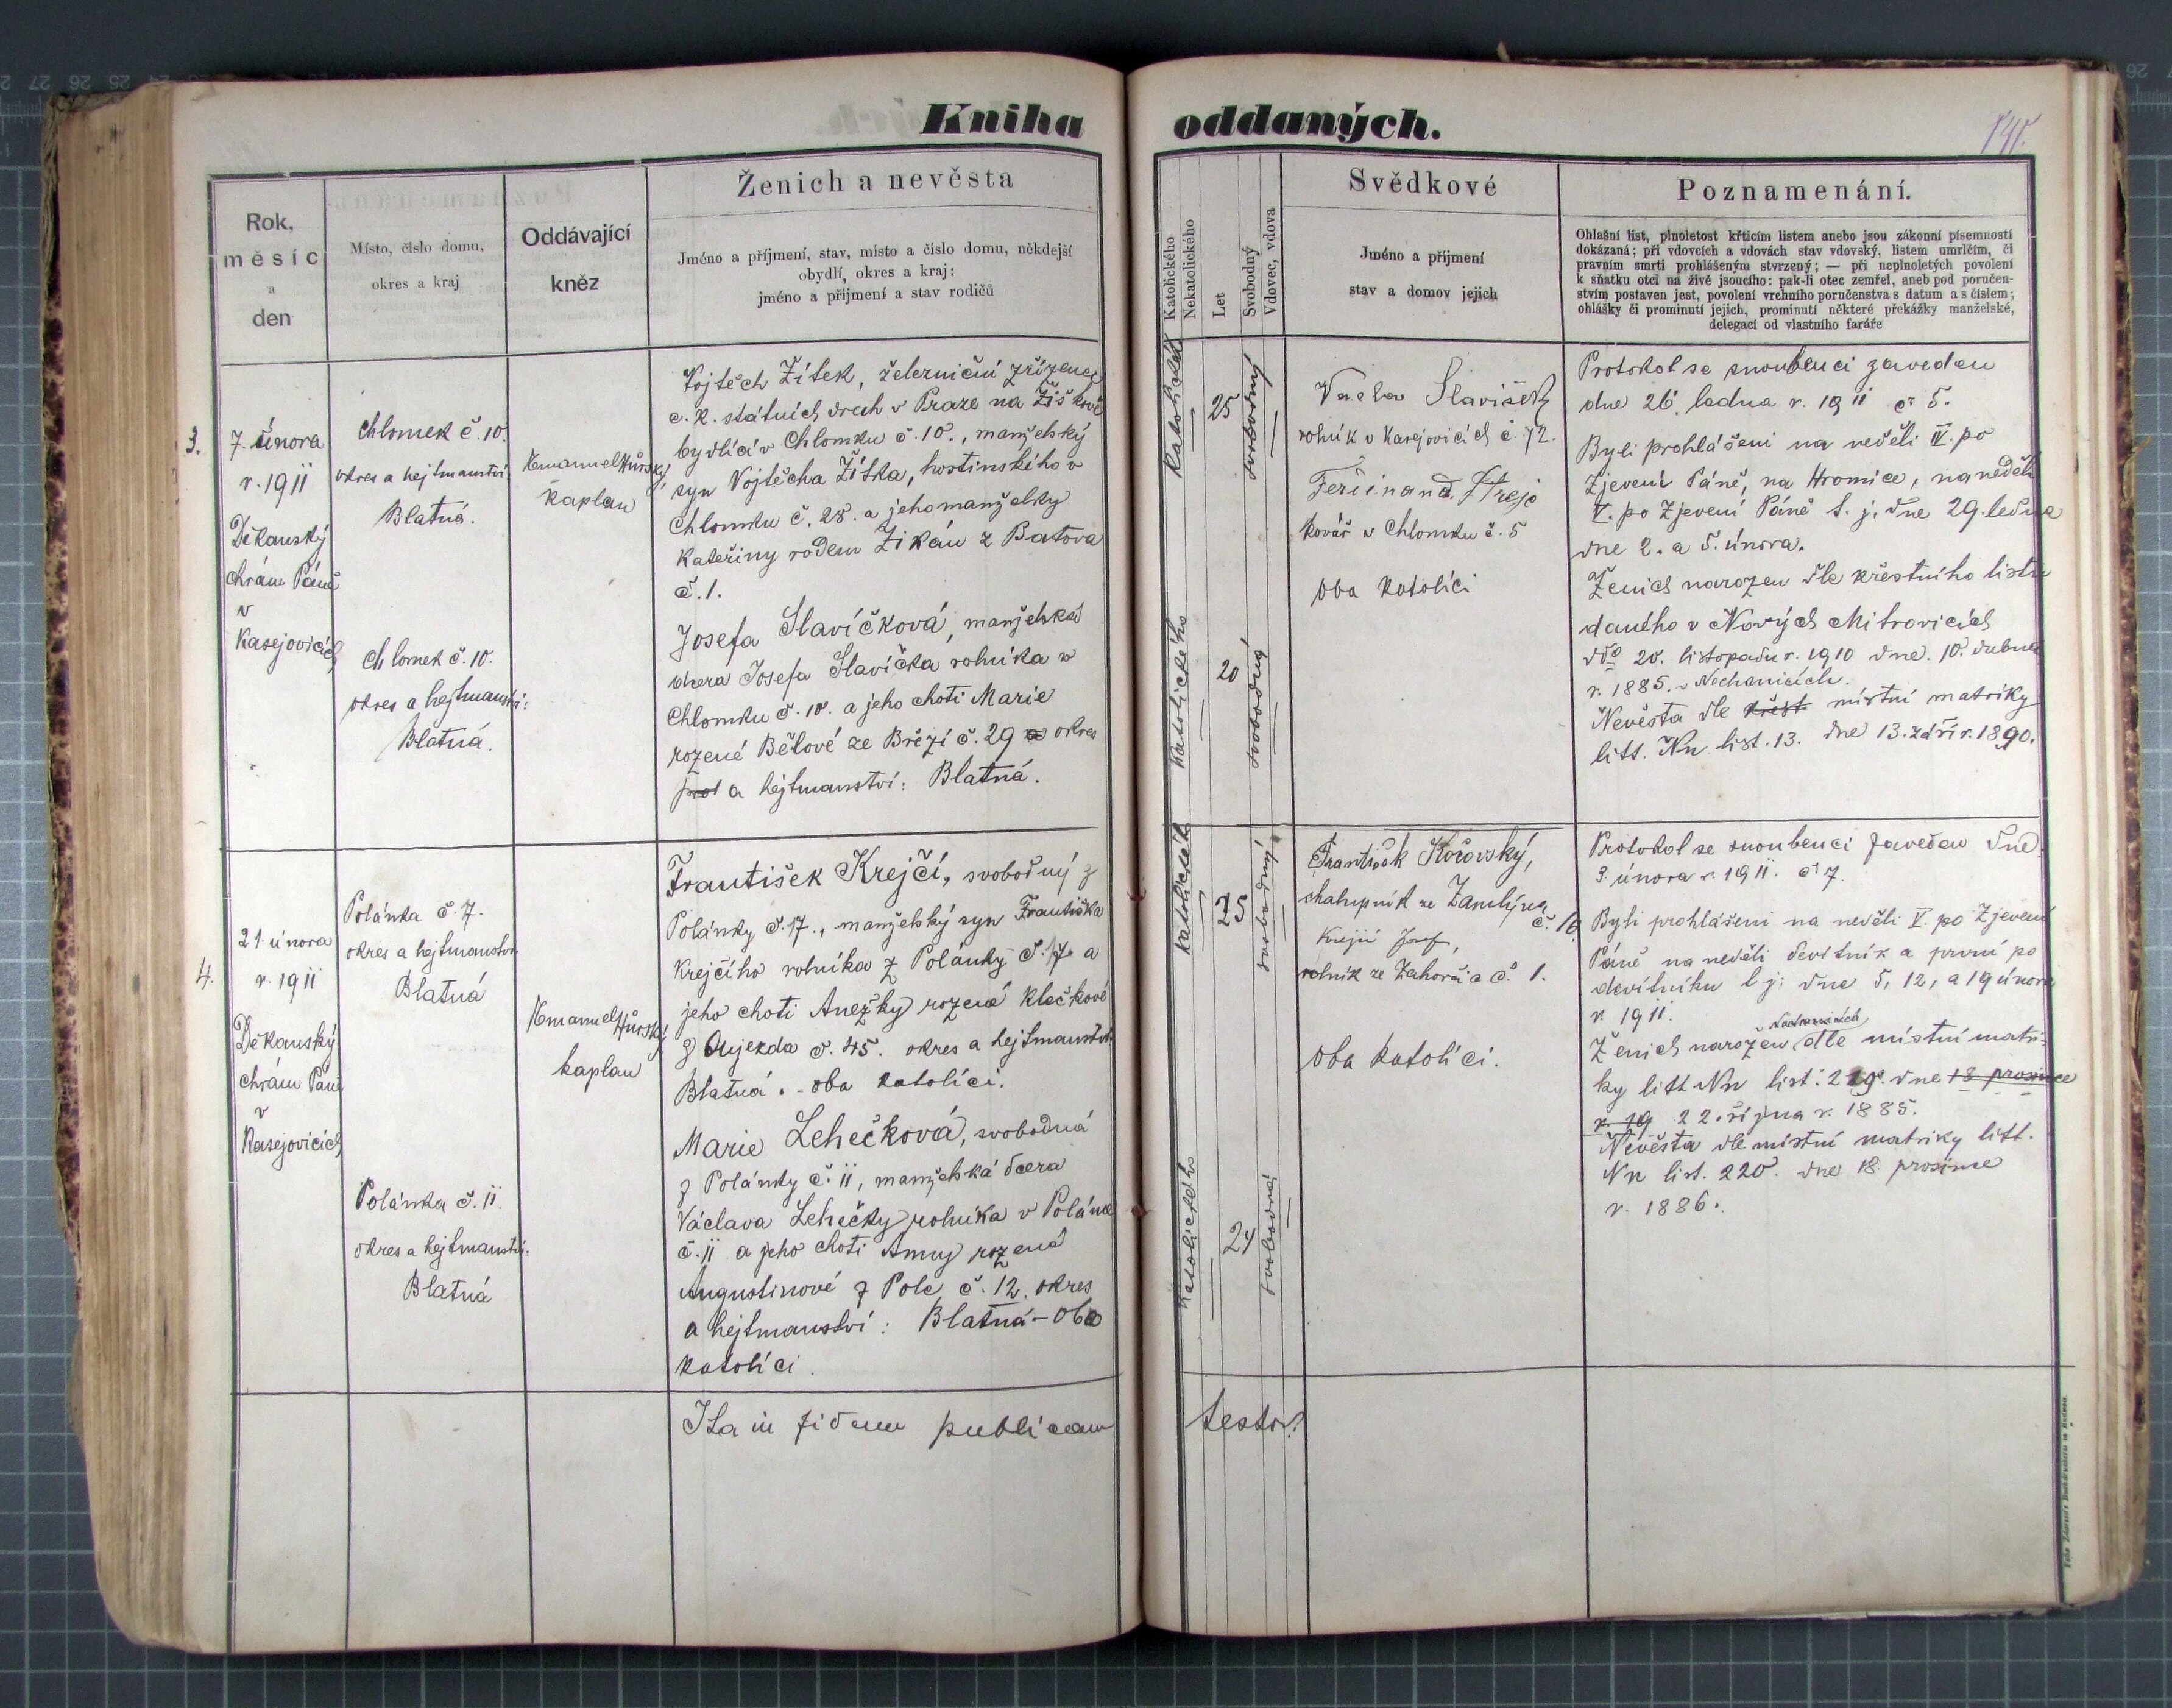 Kniha oddaných.
Rok,
měsíc
a
den
Místo, číslo domu,
okres a kraj
Oddávající
kněz
Ženich a nevěsta
Jméno a příjmení, stav, místo a číslo domu, někdejší
obydlí, okres a kraj;
jméno a přijmení a stav rodičů
Katolického
Nekatolického
Let
Svobodný
Vdovec, vdova
Svědkové
Jméno a přijmení
stav a domov jejich
Poznamenání.
Ohlašní list, plnoletost křticím listem anebo jsou zákonní písemností
dokázaná; při vdovcích a vdovách stav vdovský, listem umrlčím, či
pravním smrti prohlášeným stvrzený; — při neplnoletých povolení
k sňatku otci na živě jsoucího: pak-li otec zemřel, aneb pod poručen-
stvím postaven jest, povolení vrchního poručenstva s datum a s číslem;
ohlášky či prominutí jejich, prominutí některé překážky manželské,
delegací od vlastního faráře
3.
7. února
r. 1911
Děkanský
chrám Páně
v
Kasejovicích
Chlomek č. 10.
okres a hejtmanství
Blatná.
Chlomek č. 10.
okres a hejtmanství:
Blatná.
Emanuel Hůrský,
kaplan
Vojtěch Žítek, železniční zřízenec
c. k. státních drah v Praze na Žižkově
bydlící v Chlomku č. 10., manželský
syn Vojtěcha Žítka, hostinského v
Chlomku č. 28. a jeho manželky
Kateřiny rodem Zikán z Batova
č. 1.
Josefa Slavíčková, manželská
dcera Josefa Slavíčka rolníka v
Chlomku č. 10. a jeho choti Marie
rozené Bělové ze Březí č. 29 okres
a hejtmanství: Blatná.
katolické
25
svobodný
katolického
20
svobodná
Václav Slavíček
rolník v Kasejovicích č. 72.
Ferdinand
kovář v Chlomku č. 5
oba katolíci
Protokol se snoubenci zaveden
dne 26. ledna r. 1911 č. 5.
Byli prohlášeni na neděli IV. po
Zjevení Páně, na Hromice, na neděli
V. po Zjevení Páně t. j. dne 29. ledna
dne 2. a 5. února.
Ženich narozen dle křestního listu
daného v Nových Mitrovicích
ddo 20. listopadu r. 1910 dne. 10. dubna
r. 1885. v Nechanicích.
Nevěsta dle křest místní matriky
litt. Nn list. 13. dne 13. září r. 1890.
4.
21. února
r. 1911
Děkanský
chrám Páně
v
Kasejovicích
Polánka č. 7.
okres a hejtmanství
Blatná
Polánka č. 11.
okres a hejtmanství:
Blatná
Emanuel Hůrský
kaplan
František Krejčí, svobodný z
Polánky č. 7., manželský syn Františka
Krejčího rolníka z Polánky č. 7. a
jeho choti Anežky rozené Klečkové
z Oujezda č. 45. okres a hejtmanství:
Blatná. - oba katolíci.
Marie Lehečková, svobodná
z Polánky č. 11, manželská dcera
Václava Lehečky rolníka v Polánce
č. 11 a jeho choti Anny rozené
Augustinové z Pole č. 12. okres
a hejtmanství: Blatná - oba
katolíci.
katolické
25
svobodný
katolického
24
svobodná
František Kořovský,
chalupník ze Zamlýna
č. 10.
Krejčí Josef,
rolník ze Zahorčic č. 1.
oba katolíci.
Protokol se snoubenci zaveden dne
3. února r. 1911. č. 7.
Byli prohlášeni na neděli V. po Zjevení
Páně na neděli devítník a první po
devítníku t. j. dne 5, 12, a 19 února
r. 1911.
Ženich narozen dle místní matri-
ky litt Nn list. dne 18 prosince
r. 19 22. října r. 1885.
Nevěsta dle místní matriky litt.
Nn list. 220. dne 18. prosince
r. 1886.
Ita in fidem publicam testor.